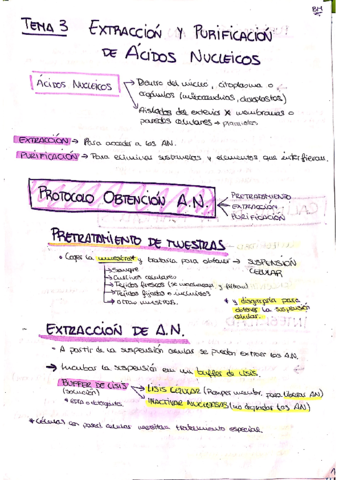 BM
TEMA 3 EXTRACCIÓN Y PURIFICACIÓN
DE ÁCIDOS NUCLEICOS
ÁCIDOS NUCLEICOS → Dentro del núcleo, citoplasma o
orgánulos (mitocondrias, cloroplastos)
→ Aislados del exterior x membranas o
paredes celulares →
EXTRACCIÓN → Para acceder a los AN.
PURIFICACIÓN → Para eliminar sustancias y elementos que interfieran.
PROTOCOLO OBTENCIÓN A.N. PRETRATAMIENTO
EXTRACCIÓN
PURIFICACIÓN
PRETRATAMIENTO DE MUESTRAS
• Coger la muestra* y tratarla para obtener → SUSPENSIÓN
CELULAR
→ Sangre
→ Cultivos celulares
→ Tejidos frescos (se y filtran)
→ Tejidos fijados e incluidos
→ otras muestras.
* y disgregarla para
obtener la suspensión
celular.
- EXTRACCIÓN DE A.N.
- A partir de la suspensión celular se pueden extraer los A.N.
→ Incubar la suspensión en un buffer de lisis.
BUFFER DE LISIS → LISIS CELULAR (Romper membr. para liberar AN)
(solución)
* esta → INACTIVAR NUCLEASAS (no degraden los AN)
* Células con pared celular necesitan tratamiento especial.
1